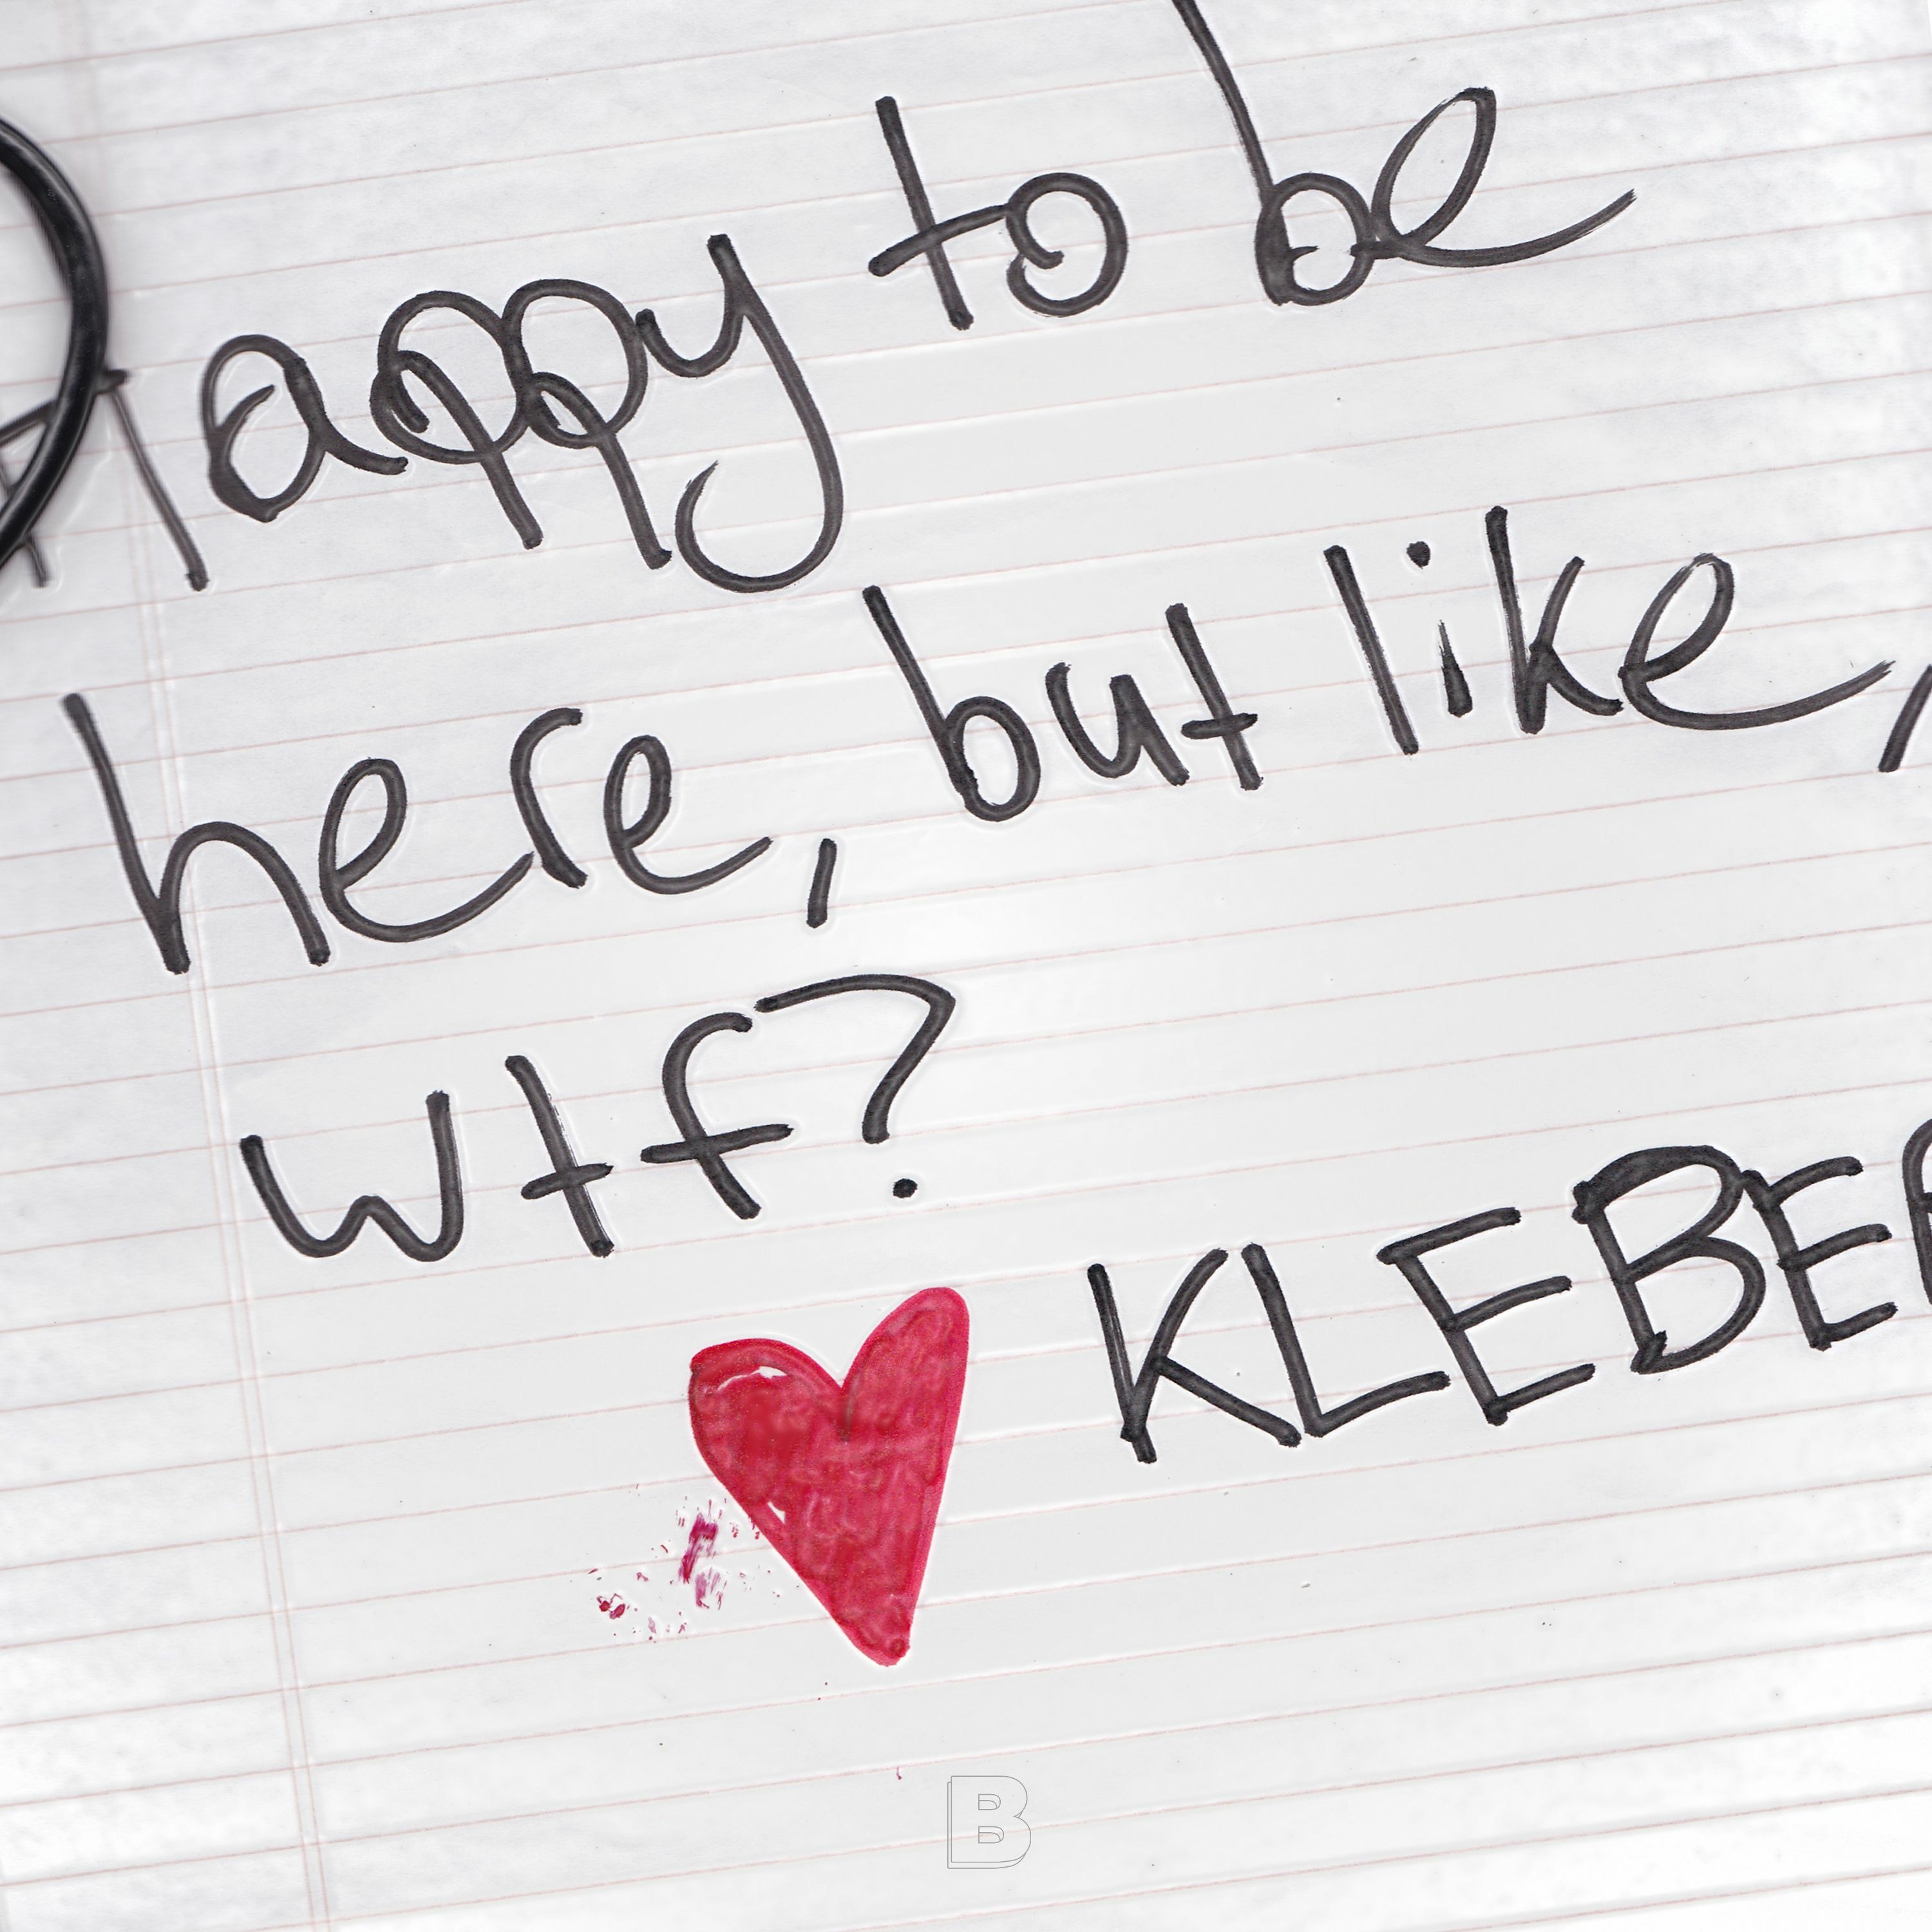 Happy to be
here, but like,
wtf?
KLEBER
B